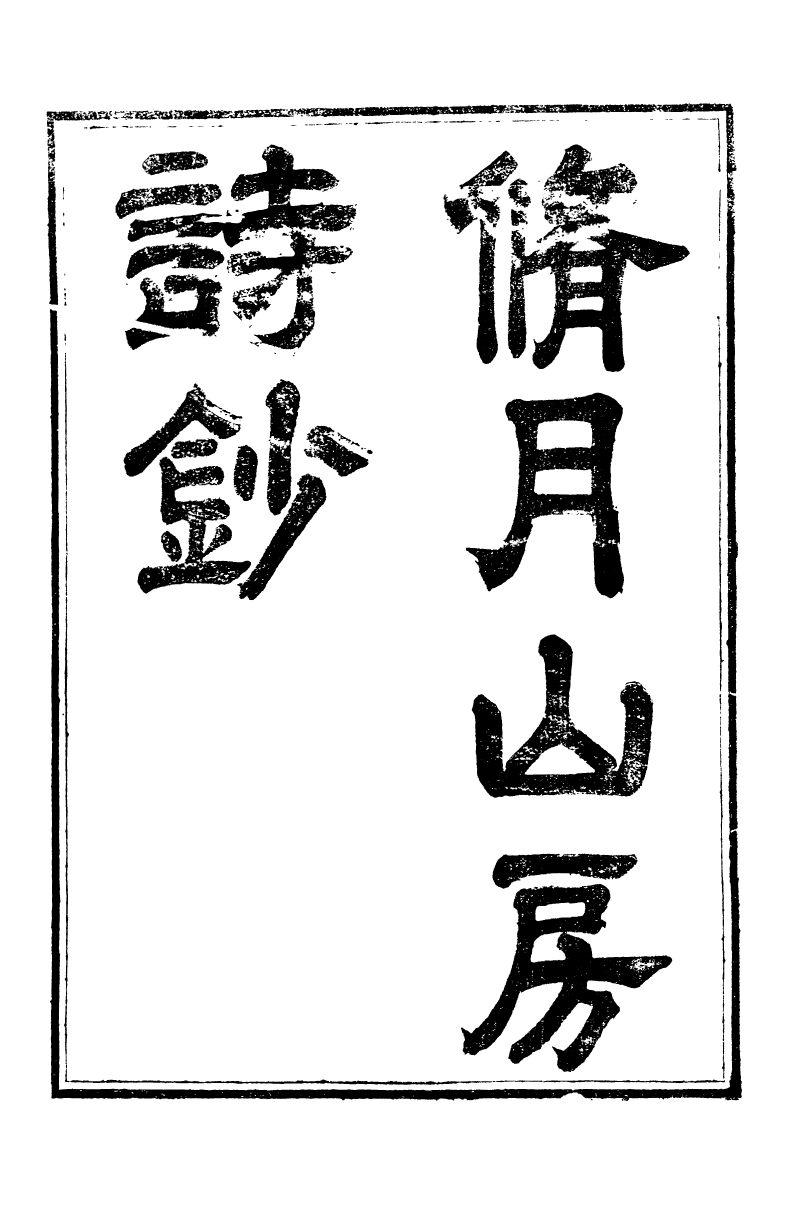 脩月山房
詩鈔